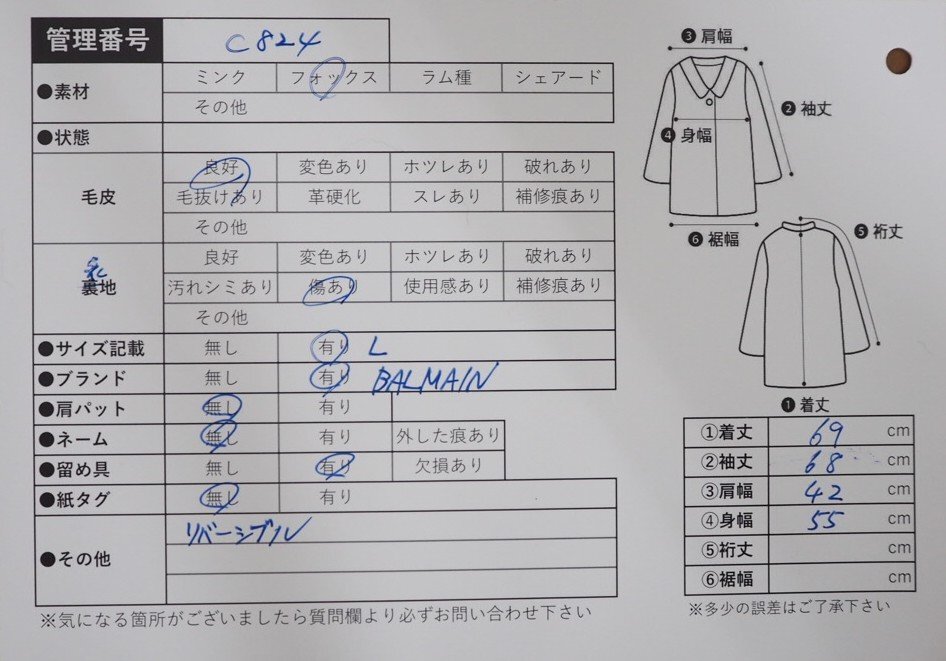 管理番号 C824
●素材 ミンク フォックス ラム種 シェアード
その他
●状態
毛皮 良好 変色あり ホツレあり 破れあり
毛抜けあり 革硬化 スレあり 補修痕あり
その他
裏地 良好 変色あり ホツレあり 破れあり
汚れシミあり 傷あり 使用感あり 補修痕あり
その他
●サイズ記載 無し 有り L
●ブランド 無し 有り BALMAIN
●肩パット 無し 有り
●ネーム 無し 有り 外した痕あり
●留め具 無し 有り 欠損あり
●紙タグ 無し 有り
●その他 リバーシブル
※気になる箇所がございましたら質問欄より必ずお問い合わせ下さい
❸肩幅
❷袖丈
❹身幅
❻裄幅
❺裄丈
❶着丈
①着丈 69 cm
②袖丈 68 cm
③肩幅 42 cm
④身幅 55 cm
⑤裄丈 cm
⑥裾幅 cm
※多少の誤差はご了承下さい